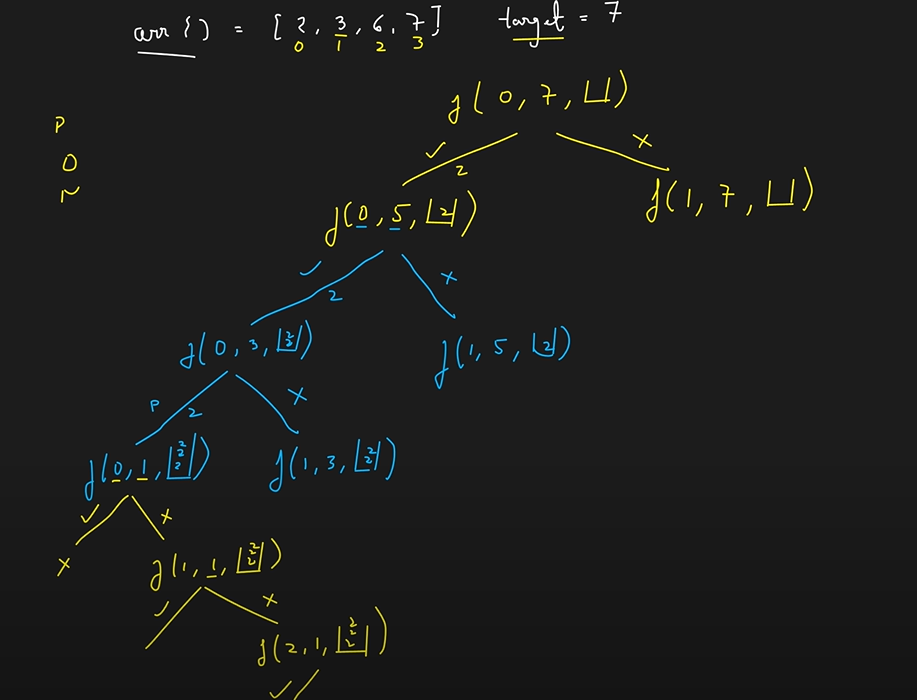 arr {) = [ 2, 3, 6, 7 ] target = 7
0 1 2 3
f( 0, 7, ⊔)
P
✓ 2 x
O
N
f(0, 5, [2]) f(1, 7, ⊔)
✓ 2 x
f(0, 3, [2 2]) f(1, 5, [2])
P 2 x
f(0, 1, [2 2 2]) f(1, 3, [2 2])
✓ x
x f(1, 1, [2 2 2])
✓ x
f(2, 1, [2 2 2])
✓